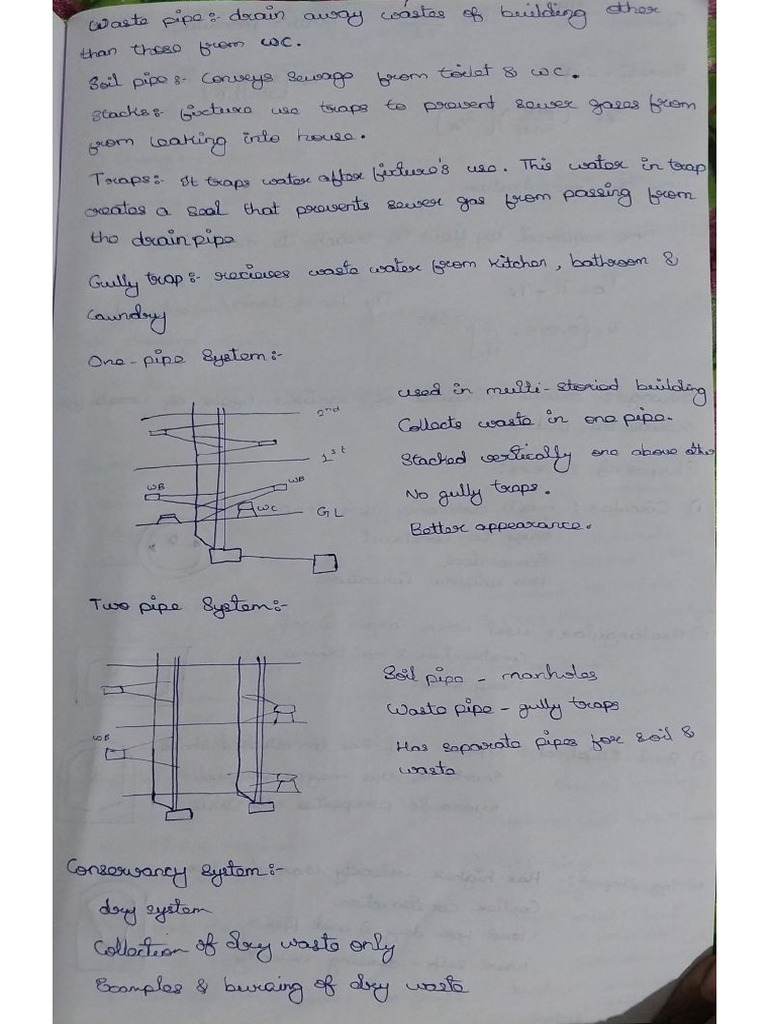 Waste pipe:- drain away wastes of building other
than those from WC.
Soil pipe:- Conveys sewage from toilet & WC.
Stacks:- fixture use traps to prevent sewer gases from
from leaking into house.
Traps:- It traps water after fixture's use. This water in trap
creates a seal that prevents sewer gas from passing from
the drainpipe
Gully trap:- recieves waste water from kitchen, bathroom &
laundry
One-pipe System:-
used in multi-storied building
Collects waste in one pipe.
Stacked vertically one above othe
No gully traps.
Better appearance.
2nd
1st
WB
WB
WC
GL
Two pipe System:-
Soil pipe - manholes
Waste pipe - gully traps
Has separate pipes for soil &
waste
WB
Conservancy System:-
dry system
Collection of dry waste only
Examples & burning of dry waste